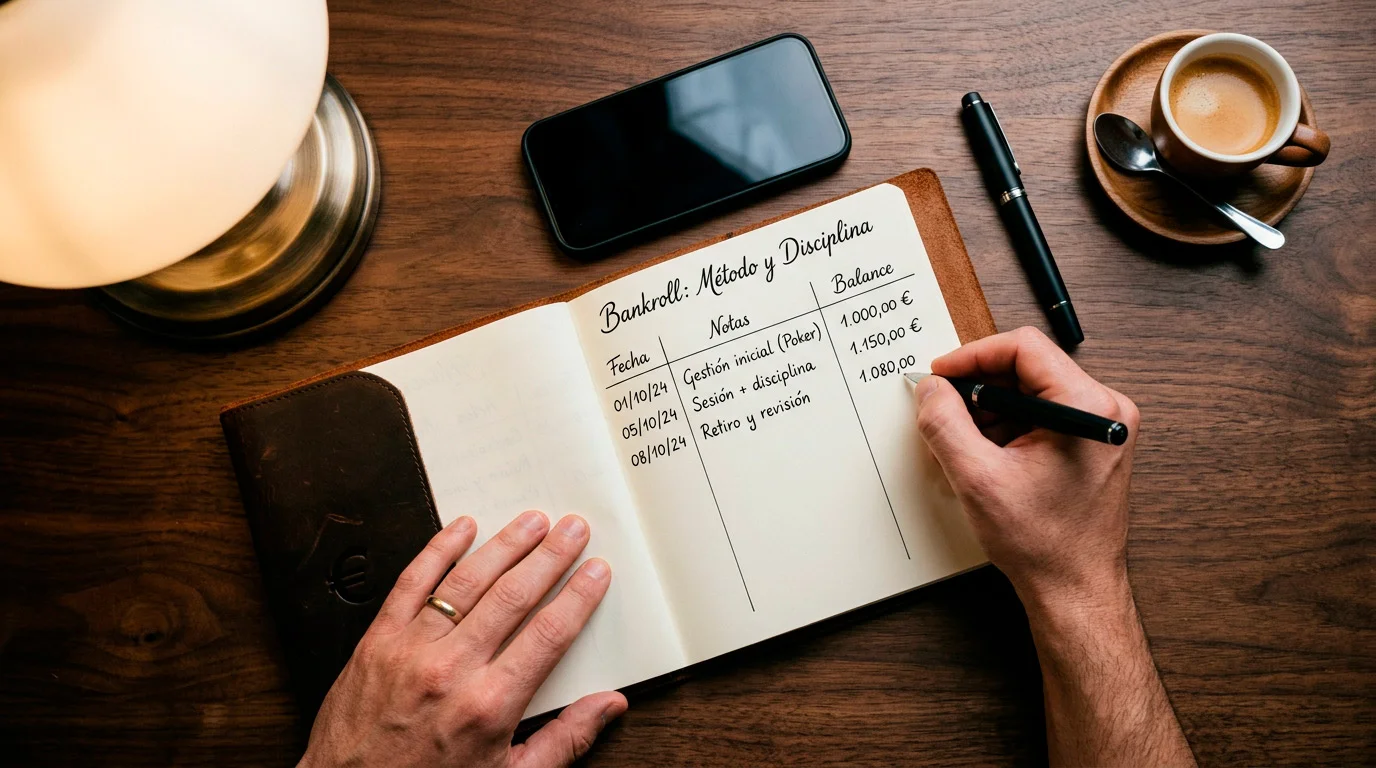 Bankroll: Método y Disciplina
Fecha Notas Balance
01/10/24 Gestión inicial (Poker) 1.000,00 €
05/10/24 Sesión + disciplina 1.150,00 €
08/10/24 Retiro y revisión 1.080,00
€